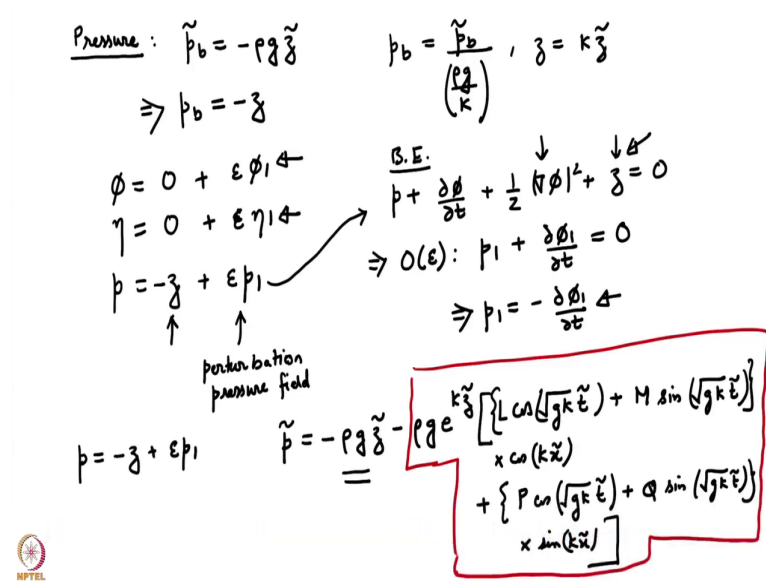 Pressure : p̃_b = -ρg z̃
p_b = p̃_b / (ρg/k) , z = k z̃
⇒ p_b = -z
φ = 0 + ε φ_1 ←
η = 0 + ε η_1 ←
p = -z + ε p_1
perturbation
pressure field
B.E.
p + ∂φ/∂t + 1/2 |∇φ|² + z = 0
⇒ O(ε): p_1 + ∂φ_1/∂t = 0
⇒ p_1 = - ∂φ_1/∂t ←
p = -z + ε p_1
p̃ = -ρg z̃ - ρg e^{k z̃} [ { L cos(√gk t̃) + M sin(√gk t̃) }
× cos(k x̃)
+ { P cos(√gk t̃) + Q sin(√gk t̃) }
× sin(k x̃) ]
NPTEL